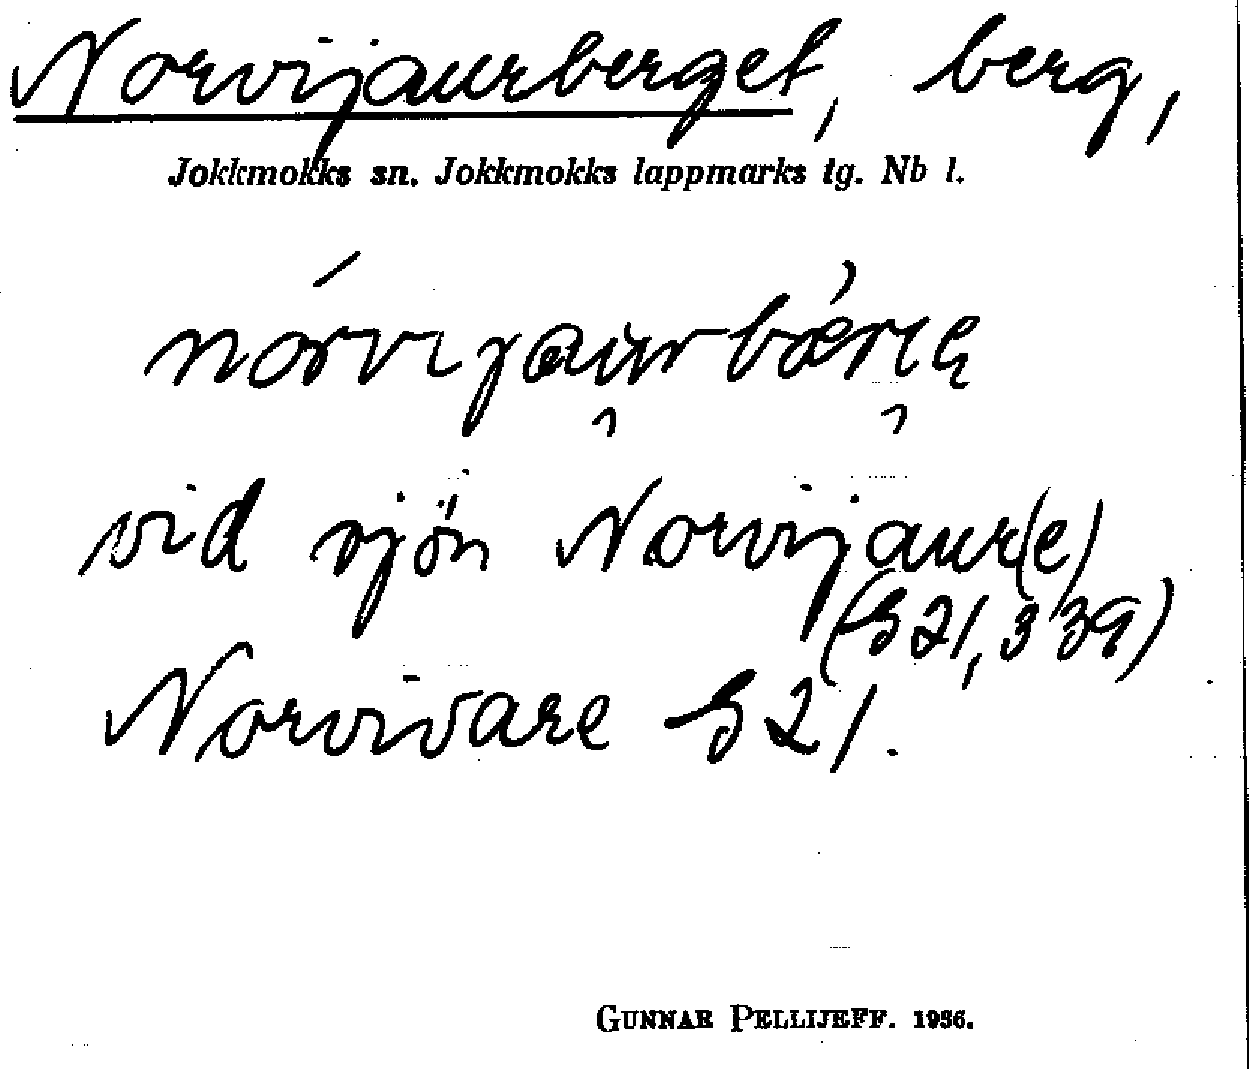 Norvijaurberget, berg,
Jokkmokks sn. Jokkmokks lappmarks tg. Nb l.
vid sjön Norvijaur(e)
(G 21, 3 39)
Norvivare G 21.
GUNNAR PELLIJEFF. 1936.